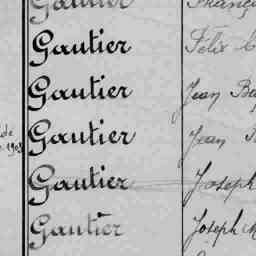 Gautier
Gautier Félix
Gautier Jean
Gautier Jean
Gautier Joseph
Gautier Joseph